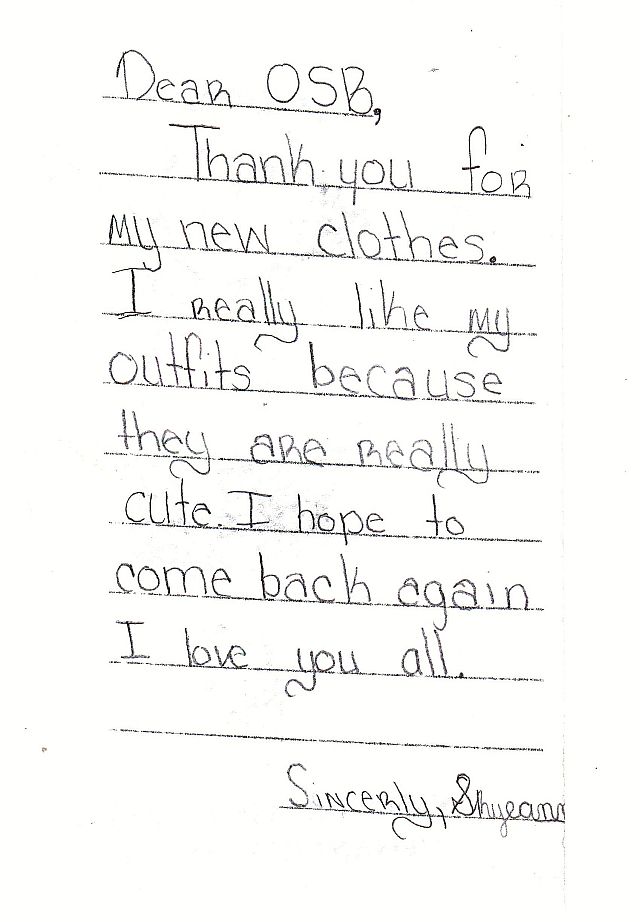 Dear OSB,
Thank you for
my new clothes.
I really like my
outfits because
they are really
cute. I hope to
come back again
I love you all.
Sincerly, Shyeann